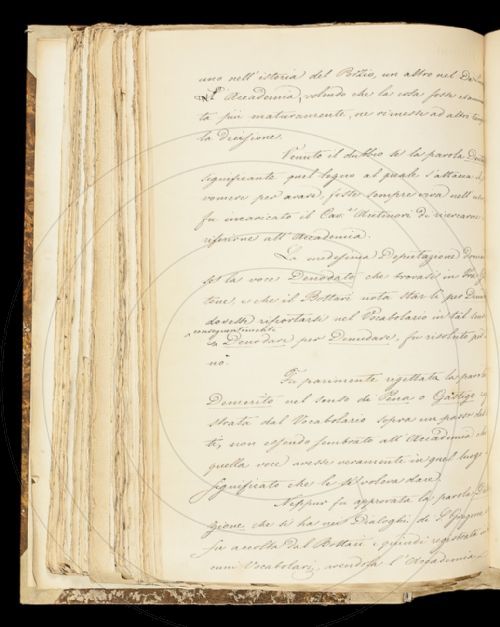 uno nell'istoria del Bozio, un altro nel
L' Accademia, volendo che la cosa fosse esamina
ta più maturamente, ne rimesse ad altro tempo
la decisione.
Venuto il dubbio se la parola
significante quel legno al quale s'attacca il
vomere per arare, fosse sempre viva nell' uso
fu incaricato il Cav. di ricercarne e
riferirne all' Accademia.
La medesima Deputazione doman
se la voce Denodato che trovasi in
tone, e che il Bottari nota star lì per
dovesse riportarsi nel Vocabolario in tal
conseguentemente
Denodare per Denudare, fu risoluto
no.
Fu parimente rigettata la parola
Demerito nel senso di Pena o Gastigo regi
strata dal Vocabolario sopra un passo del
ti, non essendo sembrato all' Accademia che
quella voce avesse veramente in quel luogo
significato che le si voleva dare.
Neppur fu approvata la parola
gione che si ha nei Dialoghi di S. Gregorio
fu accolta dal Bottari e quindi registrata
nei Vocabolari, avendola l'Accademia